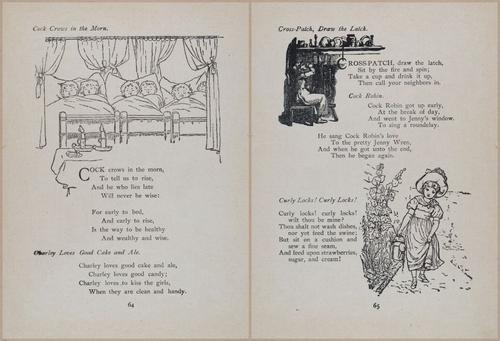 Cock Crows in the Morn.
COCK crows in the morn,
To tell us to rise,
And he who lies late
Will never be wise:
For early to bed,
And early to rise,
Is the way to be healthy
And wealthy and wise.
Charley Loves Good Cake and Ale.
Charley loves good cake and ale,
Charley loves good candy;
Charley loves to kiss the girls,
When they are clean and handy.
64
Cross-Patch, Draw the Latch.
CROSS-PATCH, draw the latch,
Sit by the fire and spin;
Take a cup and drink it up,
Then call your neighbors in.
Cock Robin.
Cock Robin got up early,
At the break of day,
And went to Jenny's window.
To sing a roundelay.
He sang Cock Robin's love
To the pretty Jenny Wren,
And when he got unto the end,
Then he began again.
Curly Locks! Curly Locks!
Curly locks! curly locks!
wilt thou be mine?
Thou shalt not wash dishes,
nor yet feed the swine;
But sit on a cushion and
sew a fine seam,
And feed upon strawberries,
sugar, and cream!
65